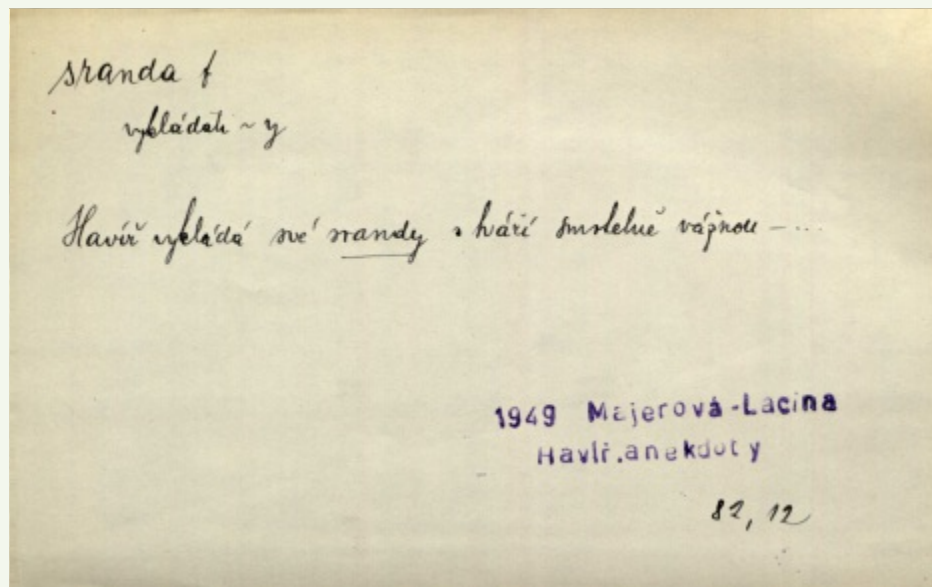 sranda f
vykládati ~ y
Havíř vykládá své srandy s tváří smrtelně vážnou — ...
1949 Majerová-Lacina
Havíř.anekdoty
82, 12